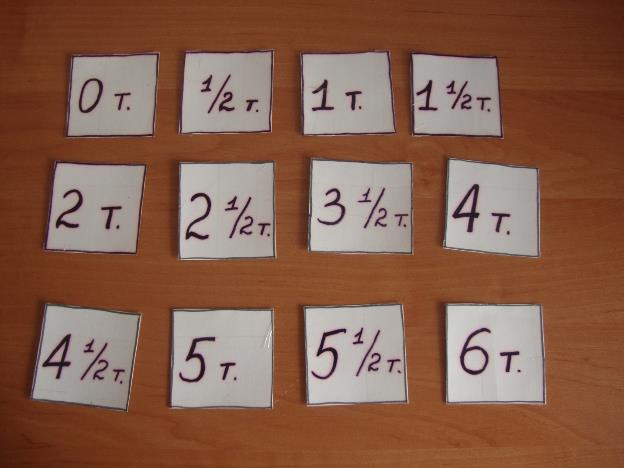 0 т. 1/2 т. 1 т. 1 1/2 т.
2 т. 2 1/2 т. 3 1/2 т. 4 т.
4 1/2 т. 5 т. 5 1/2 т. 6 т.